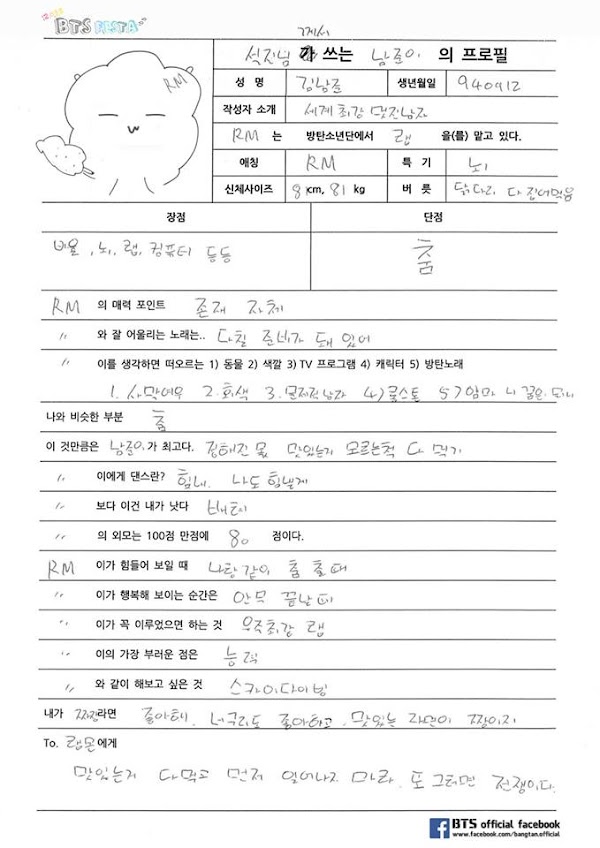 BTS FESTA
께서
석진님 쓰는 남준이 의 프로필
RM
성 명 김남준 생년월일 940912
작성자 소개 세계최강 멋진남자
RM 는 방탄소년단에서 랩 을(를) 맡고 있다.
애칭 RM 특 기 뇌
신체사이즈 81 cm, 81 kg 버 릇 닭다리 다 집어먹음
장점 단점
비율, 뇌, 랩, 컴퓨터 등등 춤
RM 의 매력 포인트 존재 자체
〃 와 잘 어울리는 노래는.. 다칠 준비가 돼 있어
〃 이를 생각하면 떠오르는 1) 동물 2) 색깔 3) TV 프로그램 4) 캐릭터 5) 방탄노래
1. 사막여우 2. 회색 3. 문제적남자 4) 5) 임마 니 꿈은 뭐니
나와 비슷한 부분 춤
이 것만큼은 남준이가 최고다. 정해진 몫 맛있는거 모르는척 다 먹기
〃 이에게 댄스란? 힘내. 나도 힘낼게
〃 보다 이건 내가 낫다
〃 의 외모는 100점 만점에 80 점이다.
RM 이가 힘들어 보일 때 나랑같이 춤 출때
〃 이가 행복해 보이는 순간은 안무 끝날때
〃 이가 꼭 이루었으면 하는 것 우주최강 랩
〃 이의 가장 부러운 점은 능력
〃 와 같이 해보고 싶은 것 스카이다이빙
내가 짜장라면 좋아해. 너구리도 좋아하고. 맛있는 라면이 짱이지
To. 랩몬에게
맛있는거 다먹고 먼저 일어나지 마라. 또 그러면 전쟁이다.
BTS official facebook
www.facebook.com/bangtan.official